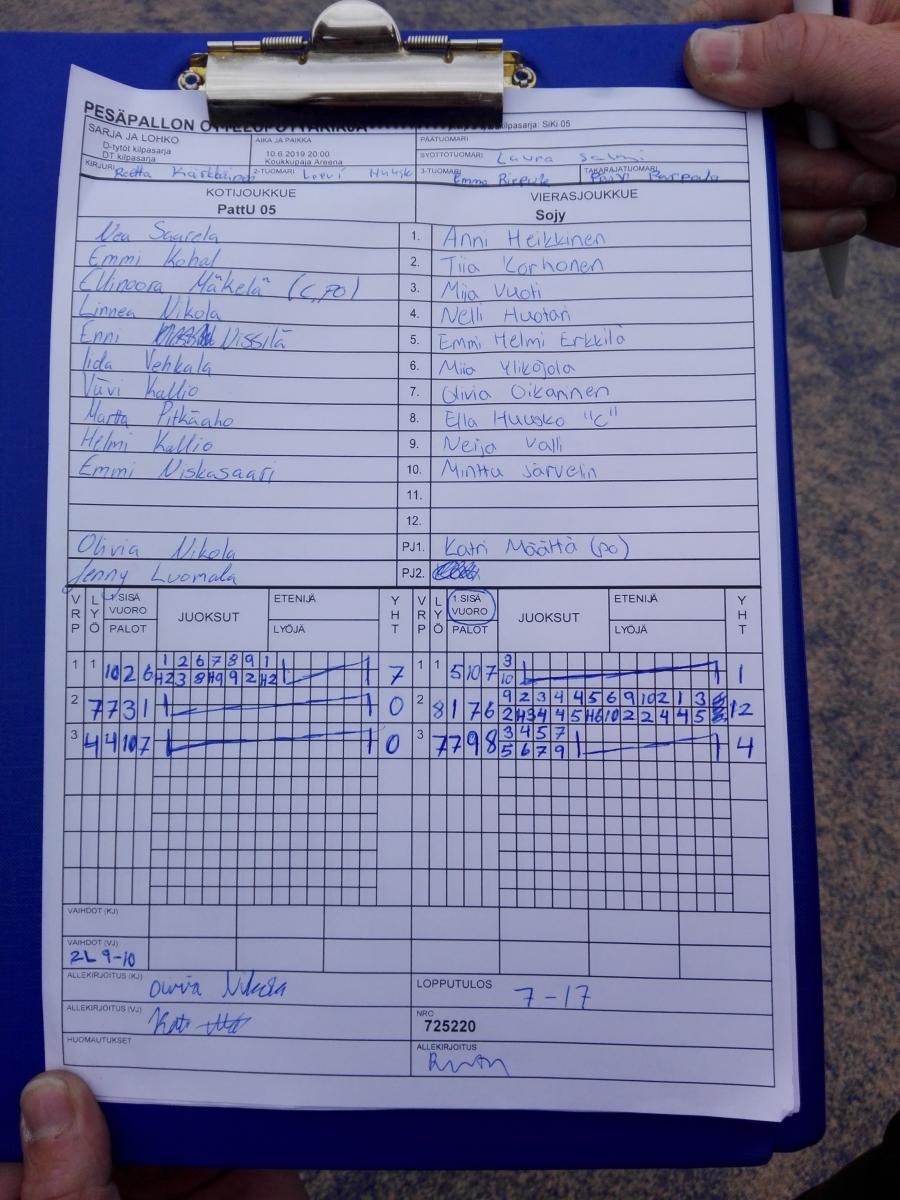 PESÄPALLON OTTELUPÖYTÄKIRJA
kilpasarja: SiKi 05
SARJA JA LOHKO
D-tytöt kilpasarja
DT kilpasarja
AIKA JA PAIKKA
10.6.2019 20:00
Koukkupaja Areena
PÄÄTUOMARI
SYÖTTÖTUOMARI Laura Salmi
KIRJURI Reetta
2-TUOMARI Leevi
3-TUOMARI Emma
TAKARAJATUOMARI Päivi
KOTIJOUKKUE
PattU 05
VIERASJOUKKUE
Sojy
Nea Saarela 1. Anni Heikkinen
Emmi Kohal 2. Tiia Korhonen
Ellinoora Mäkelä (C, PO) 3. Mija Vuoti
Linnea Nikola 4. Nelli Huotari
Enni Vissilä 5. Emmi Helmi Erkkilä
Iida Vehkala 6. Miia Ylikojola
Viivi Kallio 7. Olivia Oikarinen
Martta Pitkäaho 8. Ella Huusko "C"
Helmi Kallio 9. Neija Valli
Emmi Niskasaari 10. Minttu Järvelin
11.
12.
Olivia Nikola PJ1. Katri Määttä (po)
Jenny Luomala PJ2.
VRP LYÖ 1.SISÄ VUORO PALOT JUOKSUT ETENIJÄ LYÖJÄ YHT VRP LYÖ 1.SISÄ VUORO PALOT JUOKSUT ETENIJÄ LYÖJÄ YHT
1 2 6 7 8 9 1 3
1 1 10 2 6 H2 3 8 H9 9 2 H2 7 1 1 5 10 7 10 1
9 2 3 4 4 5 6 9 10 2 1 3
2 7 7 3 1 0 2 8 1 7 6 2 H3 4 4 5 H6 10 2 2 4 4 5 12
3 4 5 7
3 4 4 10 7 0 3 7 7 9 8 5 6 7 9 4
VAIHDOT (KJ)
VAIHDOT (VJ)
2L 9-10
ALLEKIRJOITUS (KJ) Olivia Nikola
LOPPUTULOS 7-17
ALLEKIRJOITUS (VJ)
NRO
725220
HUOMAUTUKSET
ALLEKIRJOITUS